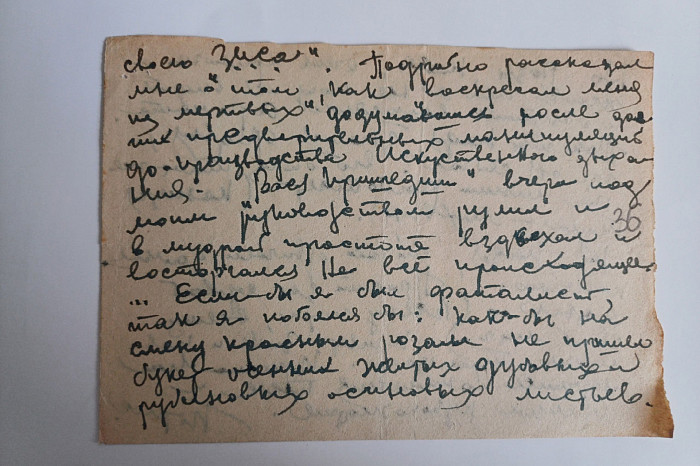 свою Зиса".. Подробно рассказал
мне о том, "как воскресал меня
из мертвых", додумавшись после
тих предварительных манипуляций
до производства Искуственного дыха
ния. "Вася Пришедший" вчера под
моим руководством рулил и 36
в мудрой простоте вздыхал и
восторжался На всё происходящее.
... Если-бы я был фаталист,
так я побоялся бы: как-бы на
смену красным розам не пришло
букет осенних желтых дубовых и
рубиновых осиновых листьев.